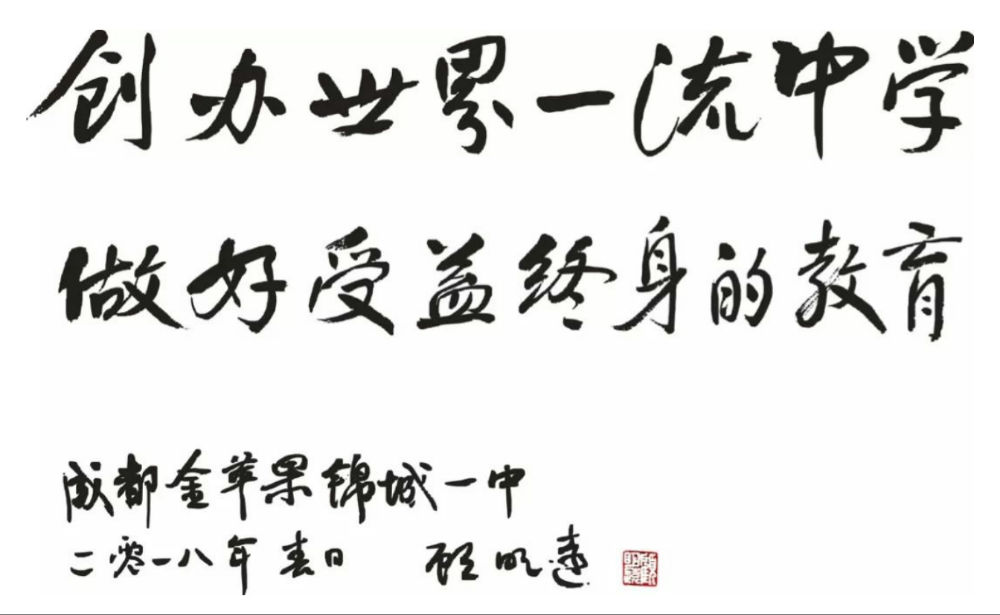 创办世界一流中学
做好受益终身的教育
成都金苹果锦城一中
二零一八年春日 顾明远